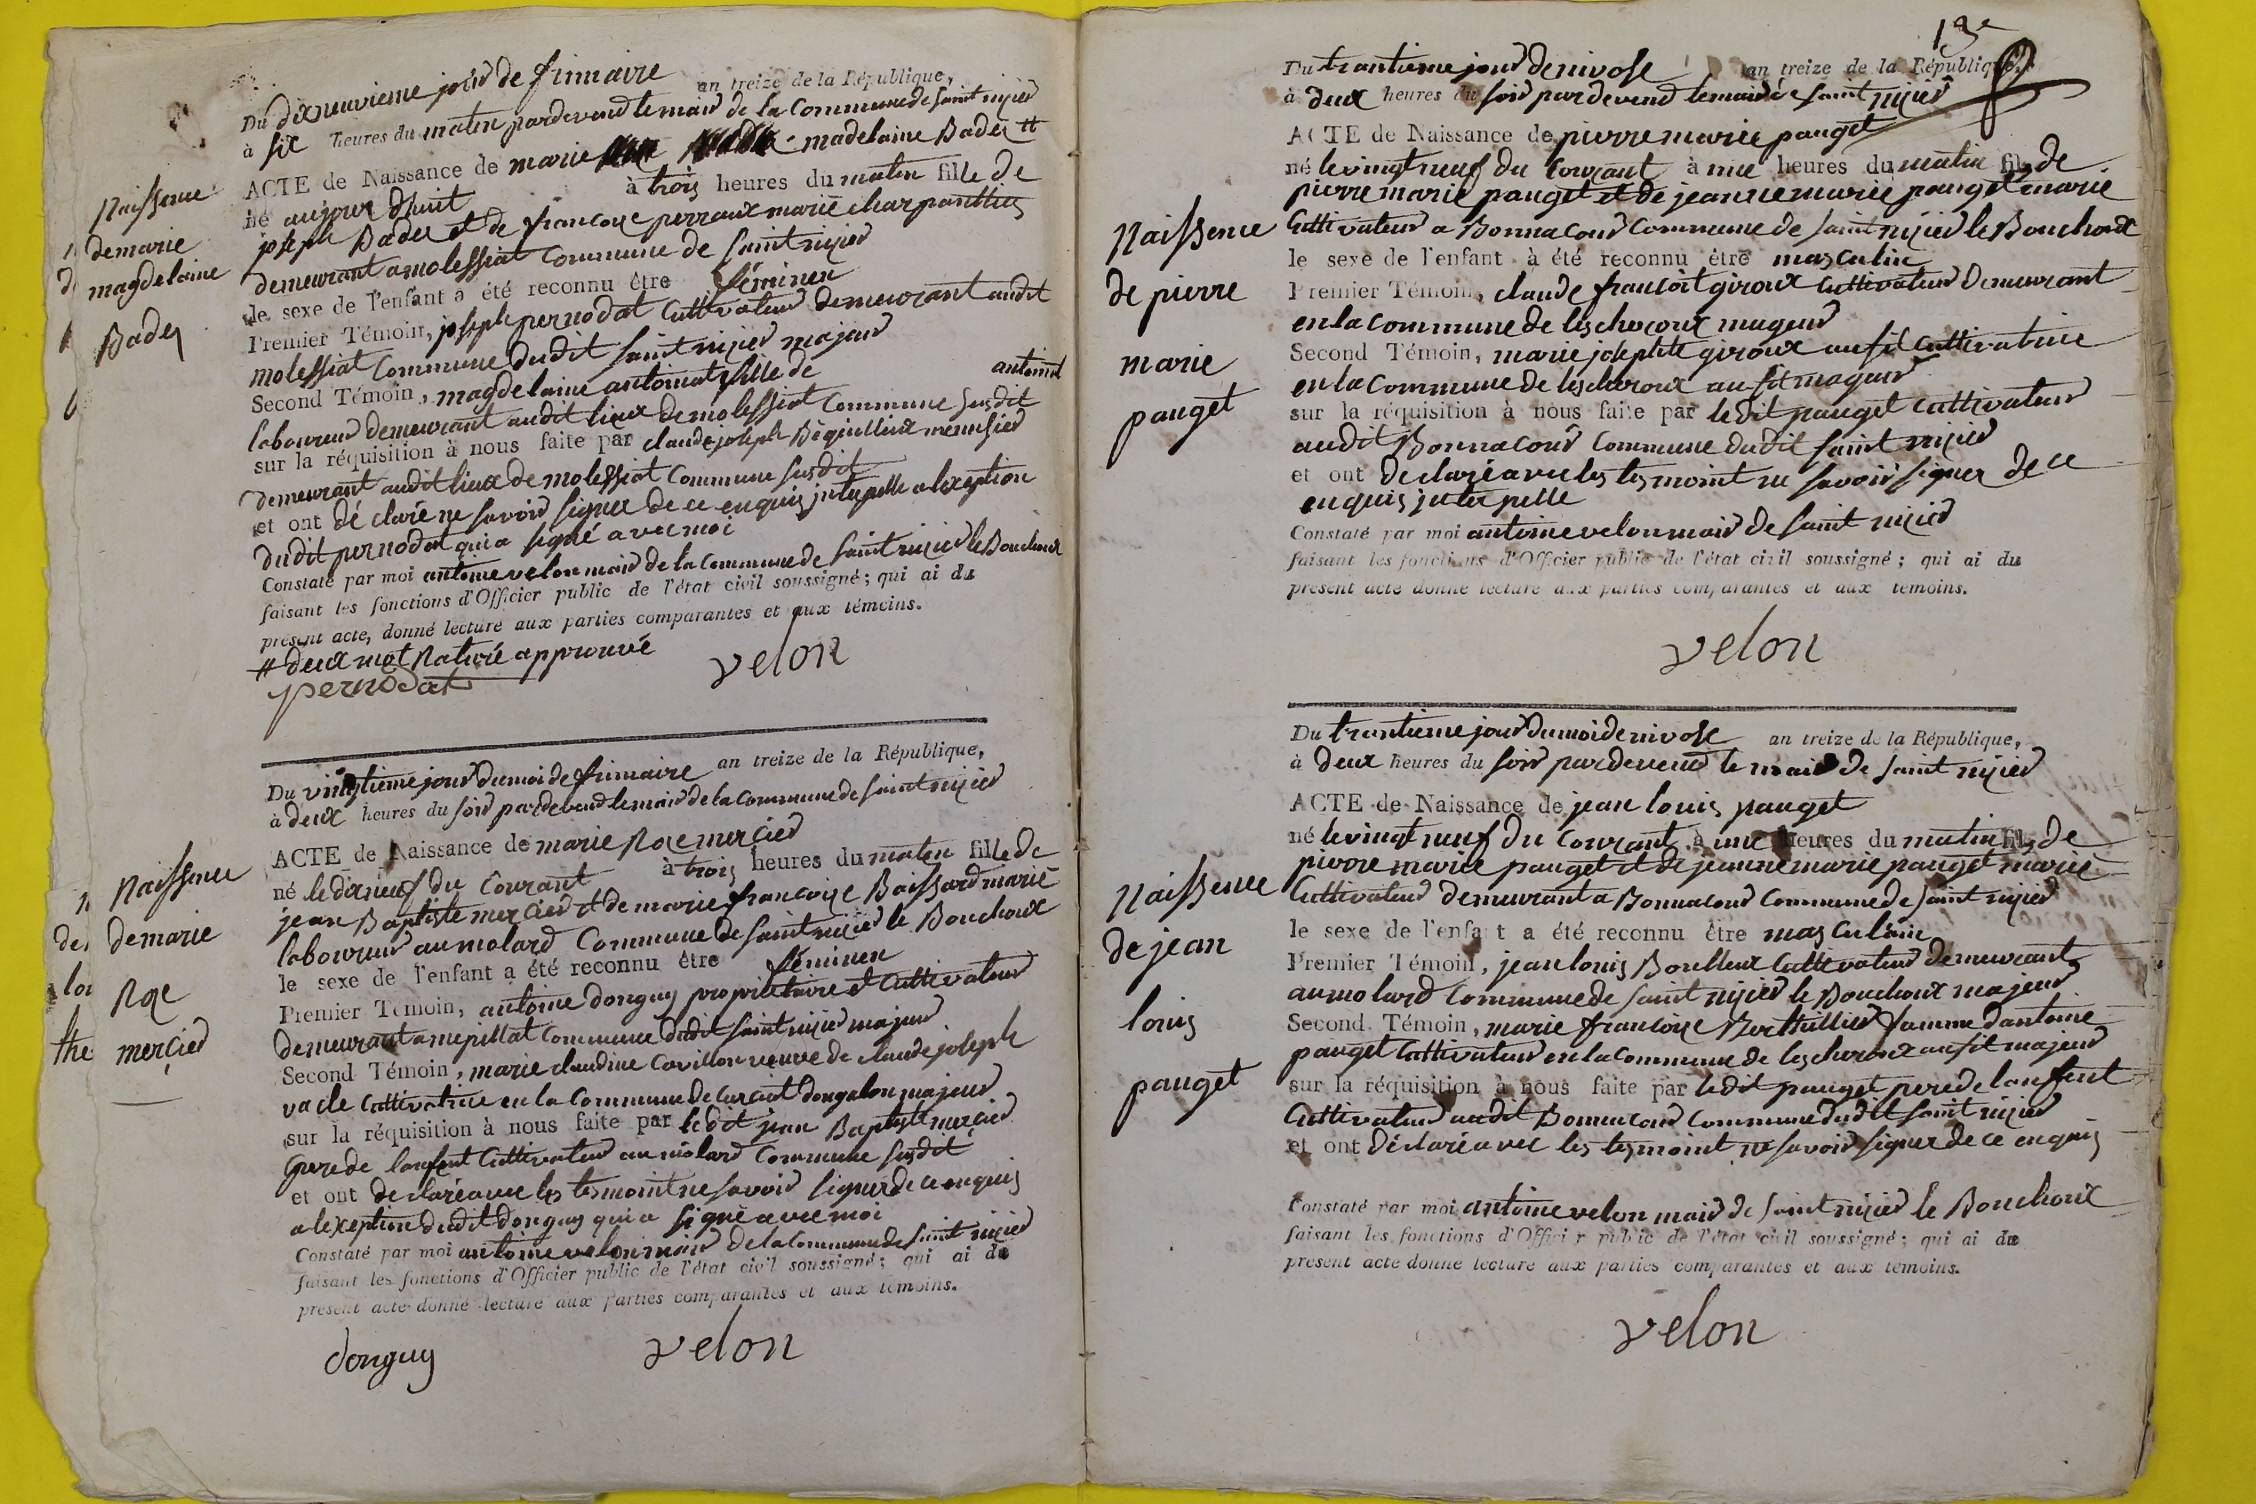 Du dixneuvieme jour de frimaire an treize de la République,
à six heures du matin pardevend le maire de la Commune de saint nizier
ACTE de Naissance de marie madelaine Badey #
né aujourd'huit à trois heures du matin fille de
joseph Badey et de francoise perraux marié charpantier
demeurant a molessiat Commune de saint nizier
le sexe de l'enfant a été reconnu être féminen
Premier Témoin, joseph pernodat Cultivateur demeurant audit
molessiat Commune dudit saint nizier majeur
Second Témoin, magdelaine antoinat fille de antoinat
laboureur demeurant audit lieux de molessiat Commune susdit
sur la réquisition à nous faite par claude joseph menusier
demeurant audit lieux de molessiat Commune susdit
et ont dé claré ne savoir signer de ce enquis jnterpelle a lexeption
dudit pernodat qui a signé avec moi
Constaté par moi antoine velon maire de la Commune de saint nizier le Bouchoux
faisant les fonctions d'Officier public de l'état civil soussigné; qui ai du
présent acte, donné lecture aux parties comparantes et aux témoins.
# deux mot Raturé approuvé
velon
pernodat
Naissence
de marie
magdelaine
Badey
Du vingtieme jour du moi de frimaire an treize de la République,
à deux heures du soir pardevend le maire de la Commune de saint nizier
ACTE de Naissance de marie Roze mercier
né le dixneuf du Courant à trois heures du maten fille de
jean Baptiste mercier et de marie francoise Boissard marié
laboureur au molard Commune de saint nizier le Bouchoux
le sexe de l'enfant a été reconnu être féminen
Premier Témoin, antoine donguy proprietaire et Cultivateur
demeurant a mepillat Commune dudit saint nizier majeur
Second Témoin, marie claudine Cavillon veuve de claude joseph
vacle Cultivatrice en la Commune de Curciat dongalon majeur
sur la réquisition à nous faite par le dit jean Baptiste mercier
pere de lanfent Cultivateur au molard Commune susdit
et ont declaré avec les tesmoint ne savoir signer de ce enquis
a lexeption dudit donguy qui a signé avec moi
Constaté par moi antoine velon maire de la Commune de saint nizier
faisant les fonctions d'Officier public de l'état civil soussigné; qui ai du
présent acte donné lecture aux parties comparantes et aux témoins.
donguy velon
Naissence
de marie
Roze
mercier
13e
Du trantieme jour de nivose an treize de la République,
à deux heures du soir pardevend le maire de saint nizier
ACTE de Naissance de pierre marie pauget
né le vingt neuf du Courant à une heures du matin fils de
pierre marie pauget et de jeanne marie pauget marié
Cultivateur a Bonnacour Commune de saint nizier le Bouchoux
le sexe de l'enfant à été reconnu être masculin
Premier Témoin, claude francoit giroux Cultivateur demeurant
en la Commune de lescheroux mageur
Second Témoin, marie josephte giroux ausit Cultivatrice
en la Commune de lescheroux ausit mageur
sur la réquisition à nous faite par ledit pauget Cultivateur
audit Bonnacour Commune dudit saint nizier
et ont declaré avec les tesmoint ne savoir signer de ce
enquis jnterpelle
Constaté par moi antoine velon maire de saint nizier
faisant les fonctions d'Officier public de l'état civil soussigné; qui ai du
présent acte donné lecture aux parties comparantes et aux témoins.
velon
Naissence
de pierre
marie
pauget
Du trantieme jour du moi de nivose an treize de la République,
à deux heures du soir pardevend le maire de saint nizier
ACTE de Naissance de jean louis pauget
né le vingt neuf du Courant à une heures du matin fils de
pierre marie pauget et de jeanne marie pauget marié
Cultivateur demeurant a Bonnacour Commune de saint nizier
le sexe de l'enfant a été reconnu être masculin
Premier Témoin, jean louis Boulleux Cultivateur demeurant
au molard Commune de saint nizier le Bouchoux majeur
Second Témoin, marie francoise Berthillier famme d'antoine
pauget Cultivateur en la Commune de lescheroux ausit majeur
sur la réquisition à nous faite par ledit pauget pere de lanfent
Cultivateur audit Bonnacour Commune dudit saint nizier
et ont déclaré avec les tesmoint ne savoir signer de ce enquis
Constaté par moi antoine velon maire de saint nizier le Bouchoux
faisant les fonctions d'Officier public de l'état civil soussigné; qui ai du
présent acte donné lecture aux parties comparantes et aux témoins.
velon
Naissence
de jean
louis
pauget